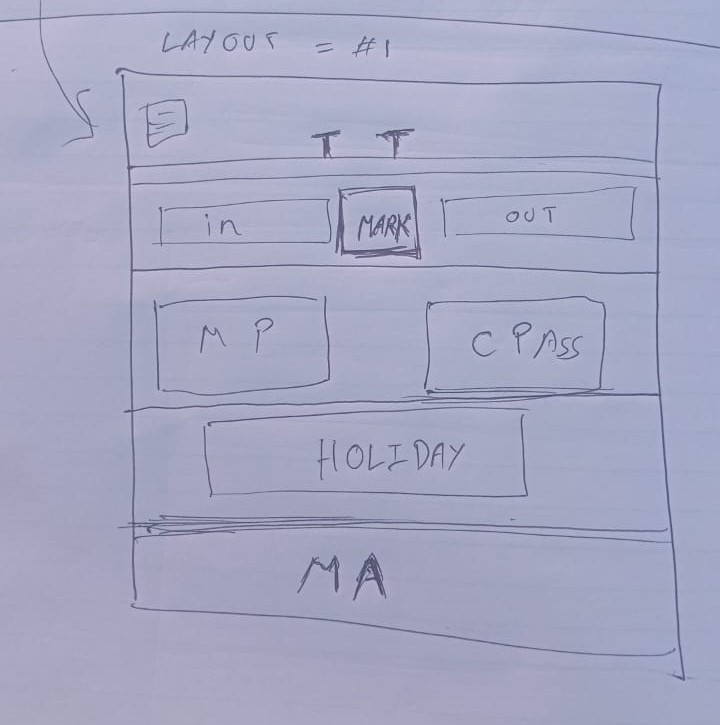 LAYOUT = #1
T T
in MARK OUT
M P C PASS
HOLIDAY
MA